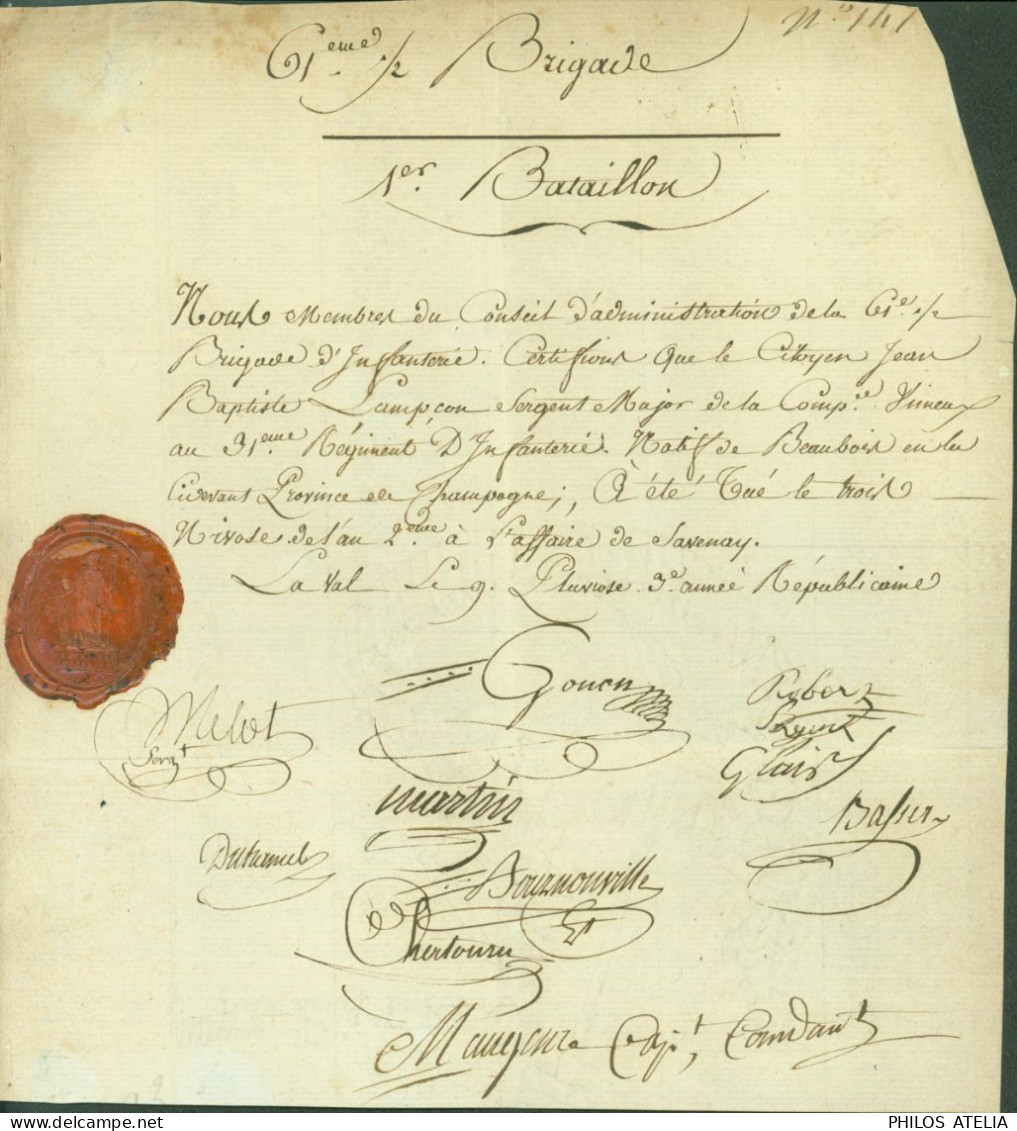 N.º 141
61.eme 1/2 Brigade
1er. Bataillon
Nous Membres du Conseil d'administration de la 61e. 1/2
Brigade d'Infanterie. Certifions Que le Citoyen Jean
Baptiste Lampçon Sergent Major de la Comp.ie Vimeux
au 31.eme Régiment D'Infanterie. Natif de Beaubois en la
Cidevant Province de Champagne;, à été Tué le trois
Nivose. de l'an 2.eme à L'affaire de Savenay.
Laval Le 9. Pluviose. 3e. année Républicaine
Gouon
Melot
Sergt
Robert
Sergent
Glais
martin
Basser
Duhamel
Bournonville
Lt
Capt, Comdant
PHILOS ATELIA